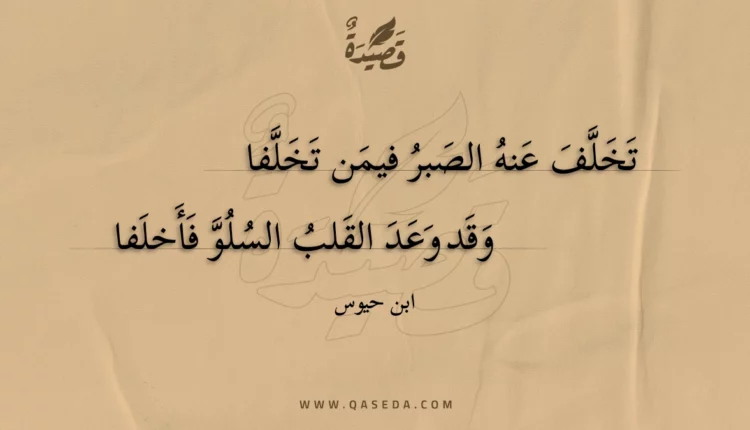 قَصِيْدَةٌ
تَخَلَّفَ عَنهُ الصَبرُ فيمَن تَخَلَّفا
وَقَد وَعَدَ القَلبُ السُلُوَّ فَأَخلَفا
ابن حيوس
WWW.QASEDA.COM